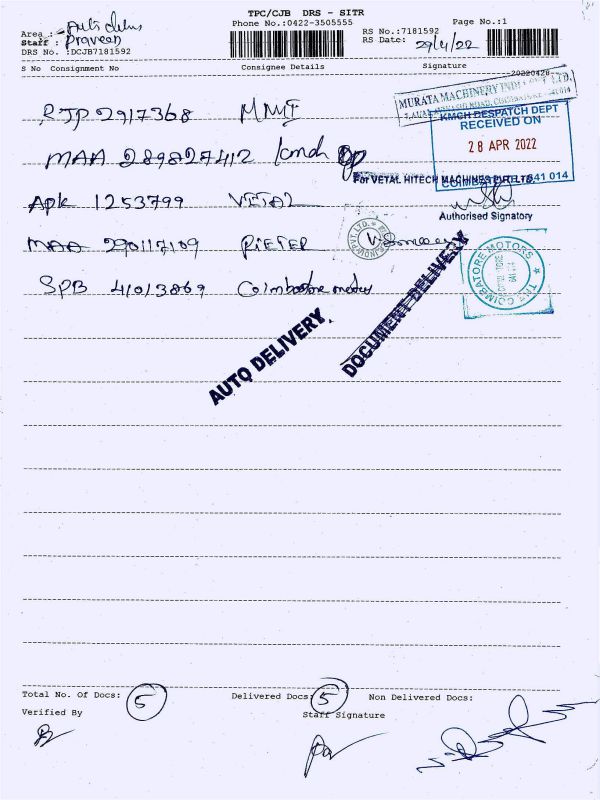 TPC/CJB DRS - SITR
Phone No.:0422-3505555
Page No.:1
RS No.:7181592
RS Date: 29/4/22
Area :
Staff : Praveen
DRS No. :DCJB7181592
S No Consignment No Consignee Details Signature
20220428
MURATA MACHINERY
KMCH DESPATCH DEPT
RECEIVED ON
28 APR 2022
641 014
RJP 2917368 MMI
MAA 289827412 kmch
For VETAL HITECH MACHINES PVT. LTD.
Apk 1253799 VETAL
Authorised Signatory
MAA 290117109 PIETER
SPB 41013869 Coimbatore motors
THE COIMBATORE MOTORS
AUTO DELIVERY
DOCUMENT DELIVERY
Total No. Of Docs: 5 Delivered Docs: 5 Non Delivered Docs:
Verified By Staff Signature